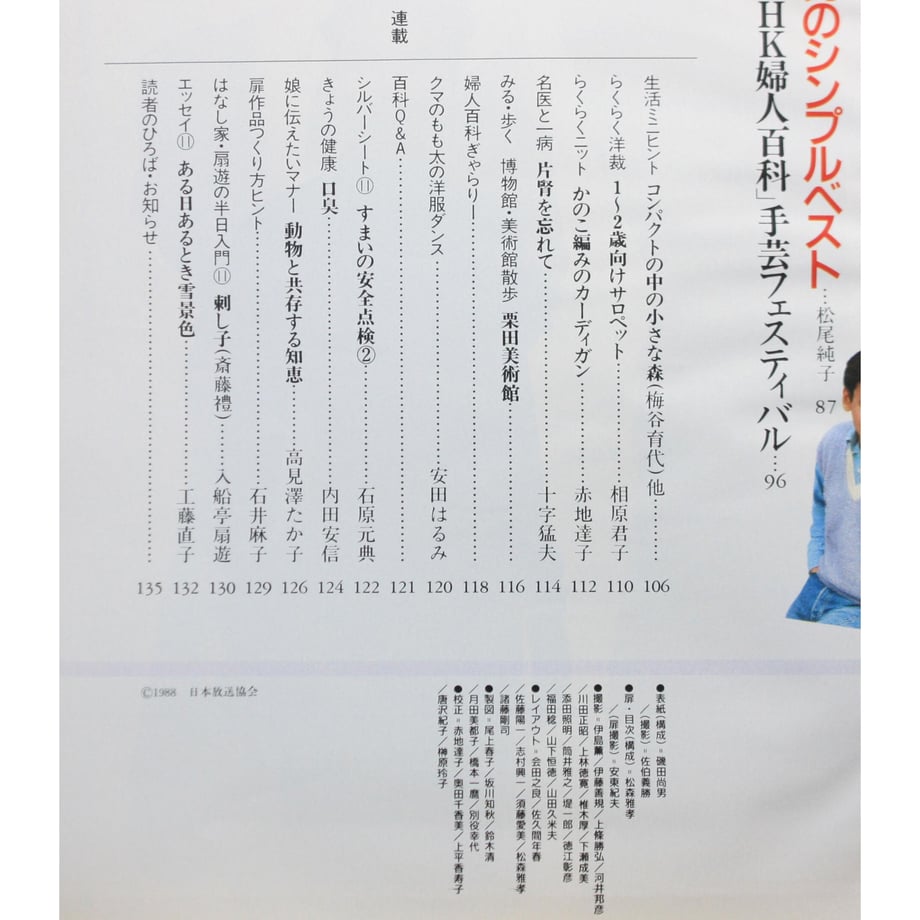 のシンプルベスト…松尾純子 87
HK婦人百科」手芸フェスティバル…96
連載
生活ミニヒント コンパクトの中の小さな森(梅谷育代)他………106
らくらく洋裁 1〜2歳向けサロペット………相原君子 110
らくらくニット かのこ編みのカーディガン………赤地達子 112
名医と一病 片腎を忘れて………十字猛夫 114
みる・歩く 博物館・美術館散歩 栗田美術館………116
婦人百科ぎゃらりー………118
クマのもも太の洋服ダンス………安田はるみ 120
百科Q&A………121
シルバーシート⑪ すまいの安全点検②………石原元典 122
きょうの健康 口臭………内田安信 124
娘に伝えたいマナー 動物と共存する知恵………高見澤たか子 126
扉作品つくり方ヒント………石井麻子 129
はなし家・扇遊の半日入門⑪ 刺し子(斎藤禮)………入船亭扇遊 130
エッセイ⑪ ある日あるとき雪景色………工藤直子 132
読者のひろば・お知らせ………135
●表紙(構成)=磯田尚男
/(撮影)=佐伯義勝
●扉・目次(構成)=松森雅孝
/(扉撮影)=安東紀夫
●撮影=伊島薫/伊藤善規/上條勝弘/河井邦彦
/川田正昭/上林徳寛/椎木厚/下瀬成美
/添田照明/筒井雅之/堤一郎/徳江彰彦
/福田稔/山下恒徳/山田久米夫
●レイアウト=会田之良/佐久間年春
/佐藤陽一/志村興一/須藤愛美/松森雅孝
/諸藤剛司
●製図=尾上春子/坂川知秋/鈴木清
/月田美都子/橋本一麿/別役幸代
●校正=赤地達子/奥田千香美/上平香寿子
/唐沢紀子/榊原玲子
©1988 日本放送協会